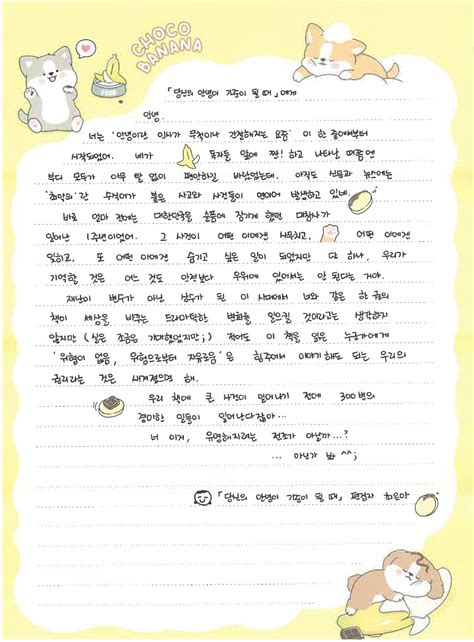 CHOCO
BANANA
FOOD
「당신의 안녕이 기준이 될 때」에게
안녕
너는 '안녕이란 인사가 무척이나 간절해지는 요즘' 이 한 줄에서부터
시작되었어. 네가 독자들 앞에 짠! 하고 나타날 때쯤엔
부디 모두가 아무 탈 없이 편안하길 바랐었는데, 아직도 신문과 뉴스에는
'최악의'란 수식어가 붙은 사고와 사건들이 연이어 발생하고 있네.
바로 얼마 전에는 대한민국을 슬픔에 잠기게 했던 대참사가
일어난 1주년이었어. 그 사건이 어떤 이에겐 사무치고, 어떤 이에겐
잊히고, 또 어떤 이에겐 숨기고 싶은 일이 되었지만 단 하나, 우리가
기억할 것은 어느 것도 안전보다 우위에 있어서는 안 된다는 거야.
재난이 변수가 아닌 상수가 된 이 시대에서 너와 같은 한 권의
책이 세상을 바꾸는 드라마틱한 변화를 일으킬 것이라고는 생각하지
않지만 (실은 조금은 기대했었지만;) 적어도 이 책을 읽은 누군가에게
'위험이 없음, 위험으로부터 자유로움'은 힘주어서 이야기해도 되는 우리의
권리라는 것은 새겨졌으면 해.
우리 책에 큰 사건이 일어나기 전에 300번의
경미한 일들이 일어난다잖아...
너 이거, 유명해지려는 전조가 아닐까...?
... 아닌가 봐 ^^;
「당신의 안녕이 기준이 될 때」 편집자 최은아